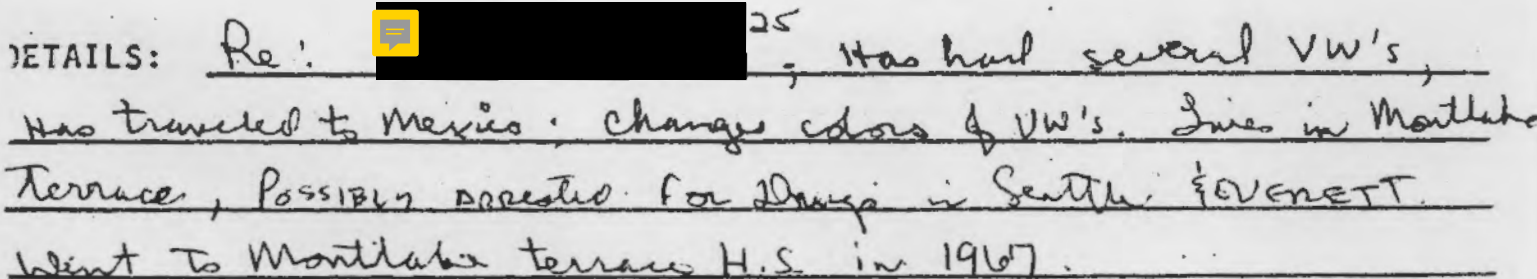 DETAILS: Re: 25, Has had several VW's,
Has traveled to Mexico. Changes colors of VW's. Lives in Montlake
Terrace, Possibly arrested for Drugs in Seattle & EVERETT.
Went To Montlake terrace H.S. in 1967.